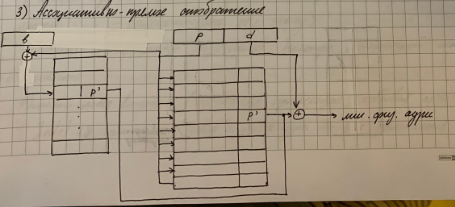 3) Ассоциативно-прямое отображение
b
p d
p'
p'
лин. физ. адрес